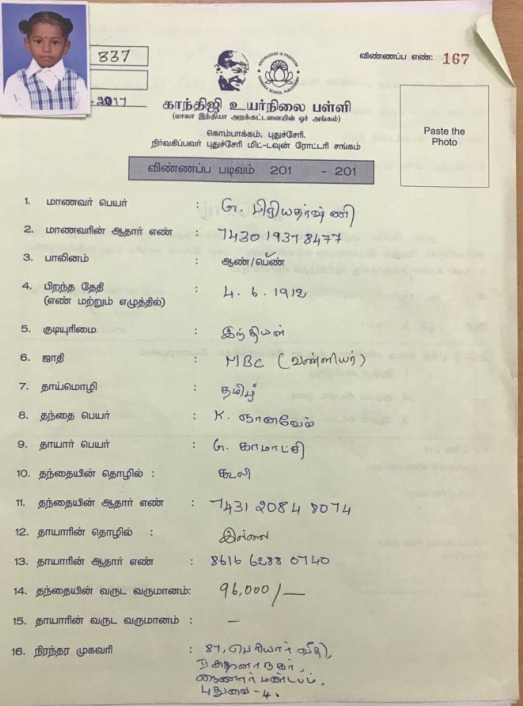 837
விண்ணப்ப எண்: 167
-2017
காந்திஜி உயர்நிலை பள்ளி
(மாலா இந்தியா அறக்கட்டளையின் ஓர் அங்கம்)
கொம்பாக்கம், புதுச்சேரி.
நிர்வகிப்பவர் புதுச்சேரி மிட்-டவுன் ரோட்டரி சங்கம்
விண்ணப்ப படிவம் 201 - 201
Paste the
Photo
1. மாணவர் பெயர் : G. பிரியதர்ஷ்ணி
2. மாணவரின் ஆதார் எண் : 7430 1937 8477
3. பாலினம் : ஆண்/பெண்
4. பிறந்த தேதி : 4.6.1912
(எண் மற்றும் எழுத்தில்)
5. குடியுரிமை : இந்தியன்
6. ஜாதி : MBC (வண்ணியர்)
7. தாய்மொழி : தமிழ்
8. தந்தை பெயர் : K. ஞானவேல்
9. தாயார் பெயர் : G. காமாட்சி
10. தந்தையின் தொழில் : கூலி
11. தந்தையின் ஆதார் எண் : 7431 2084 8074
12. தாயாரின் தொழில் : இல்லை
13. தாயாரின் ஆதார் எண் : 8616 6288 0740
14. தந்தையின் வருட வருமானம்: 96,000/-
15. தாயாரின் வருட வருமானம் : -
16. நிரந்தர முகவரி : 81, பெரியார் வீதி,
நைனார் மண்டபம்,
புதுவை-4.